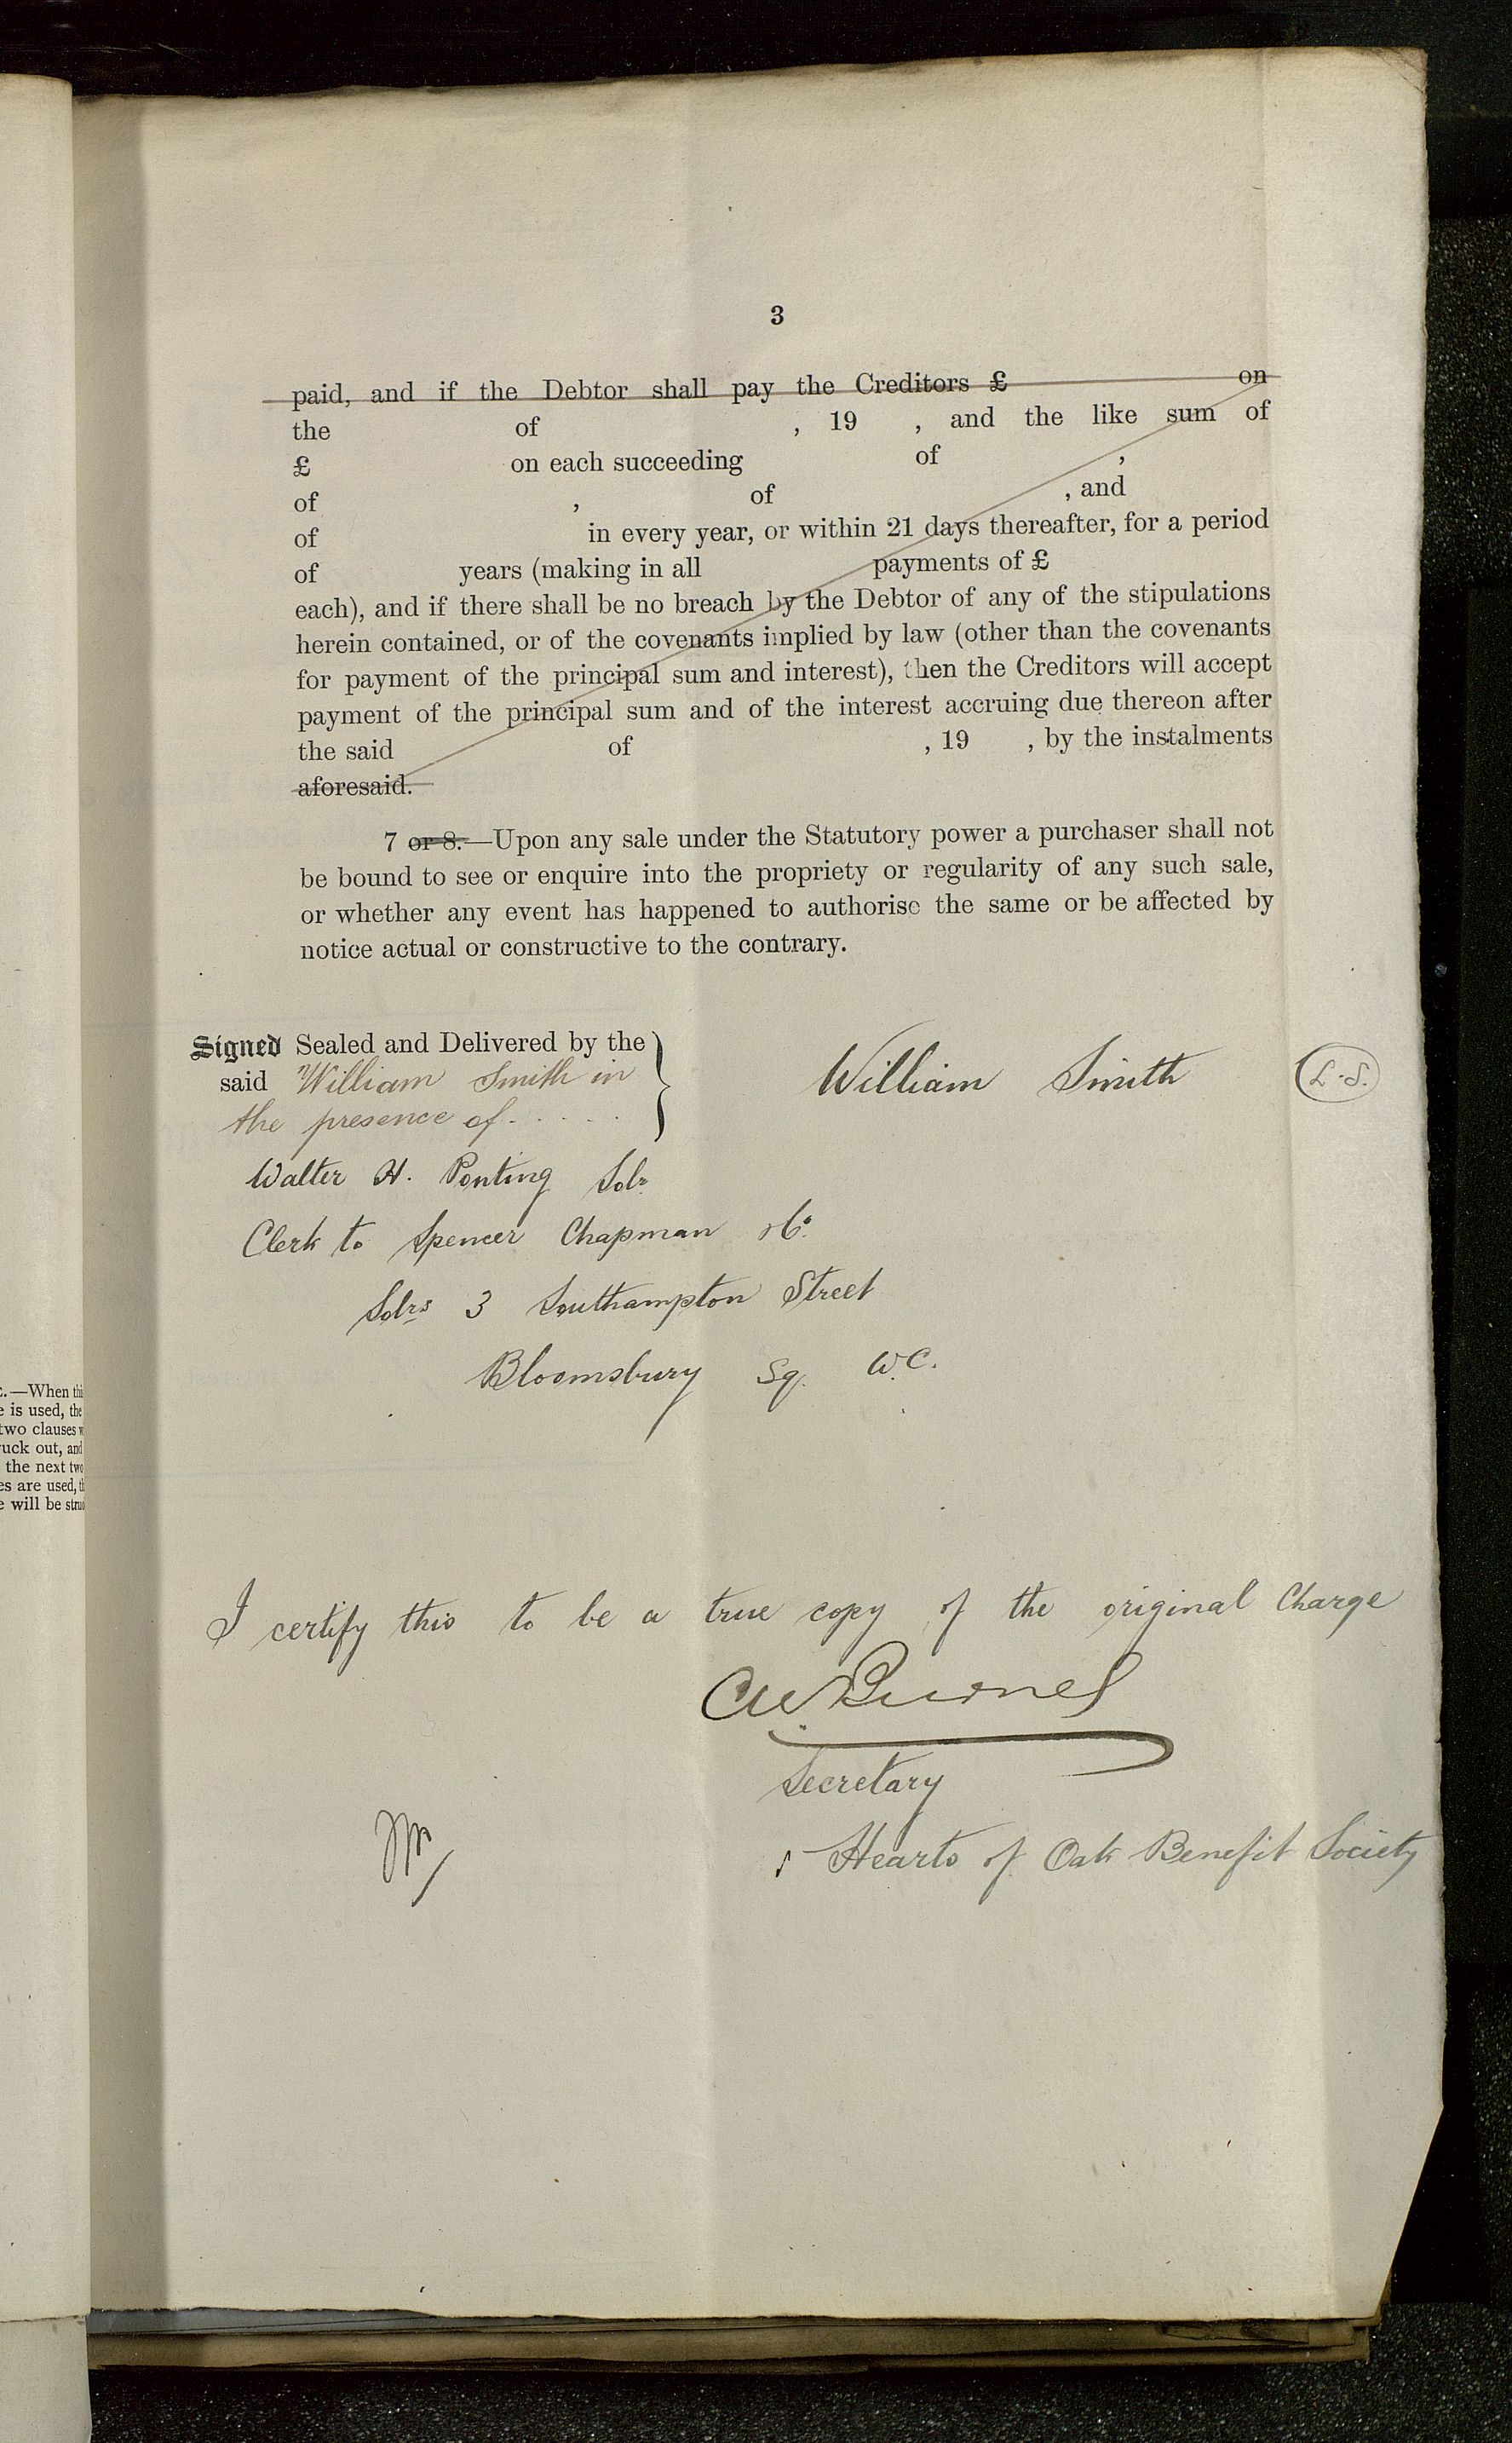 3
paid, and if the Debtor shall pay the Creditors £ on
the of , 19 , and the like sum of
£ on each succeeding of ,
of , of , and
of in every year, or within 21 days thereafter, for a period
of years (making in all payments of £
each), and if there shall be no breach by the Debtor of any of the stipulations
herein contained, or of the covenants implied by law (other than the covenants
for payment of the principal sum and interest), then the Creditors will accept
payment of the principal sum and of the interest accruing due thereon after
the said of , 19 , by the instalments
aforesaid.
7 or 8.—Upon any sale under the Statutory power a purchaser shall not
be bound to see or enquire into the propriety or regularity of any such sale,
or whether any event has happened to authorise the same or be affected by
notice actual or constructive to the contrary.
Signed Sealed and Delivered by the
said William Smith in
the presence of . . . . .
William Smith
L.S.
Walter H. Ponting Solr
Clerk to Spencer Chapman & Co.
Solrs 3 Southampton Street
Bloomsbury Sq. W.C.
c.—When thi
e is used, the
two clauses w
ruck out, and
the next two
es are used, th
e will be stru
I certify this to be a true copy of the original Charge
Secretary
Hearts of Oak Benefit Society